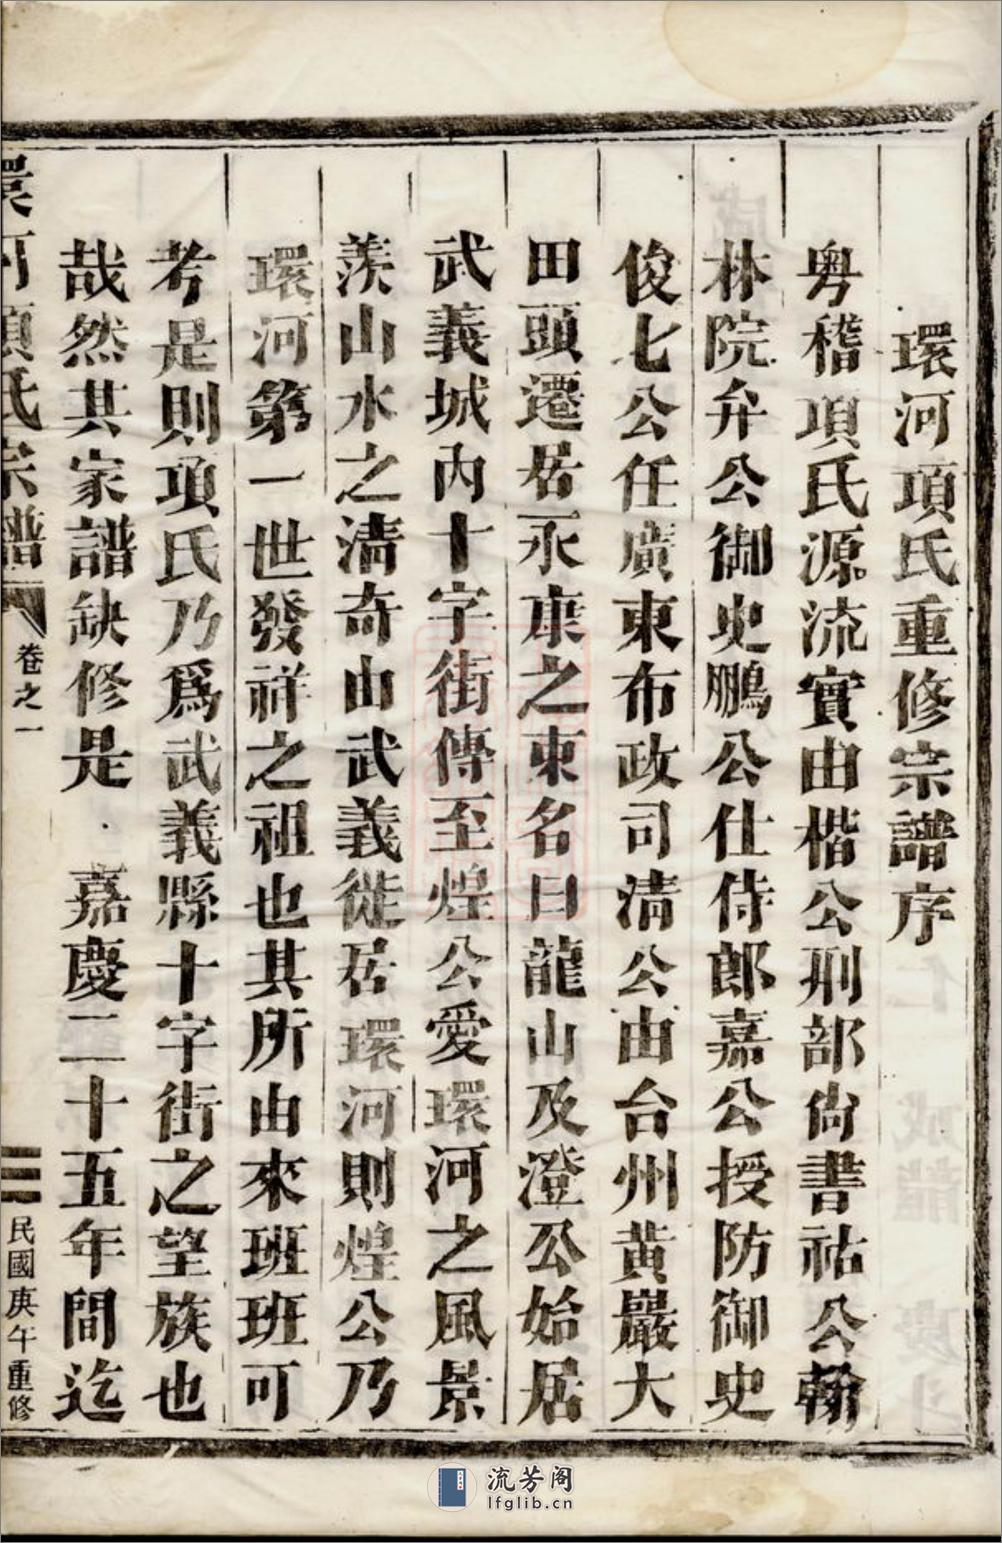 環河項氏重修宗譜序
粤稽項氏源流實由楷公刑部尙書祜公翰
林院弁公御史鵬公仕侍郎嘉公授防御史
俊七公任廣東布政司淸公由台州黄巖大
田頭遷居永康之東名曰龍山及澄公始居
武義城內十字街傳至煌公愛環河之風景
羨山水之淸奇由武義徙居環河則煌公乃
環河第一世發祥之祖也其所由來班班可
考是則項氏乃爲武義縣十字街之望族也
哉然其家譜缺修是 嘉慶二十五年間迄
環河項氏宗譜 卷之一
民國庚午重修
流芳阁
lfglib.cn